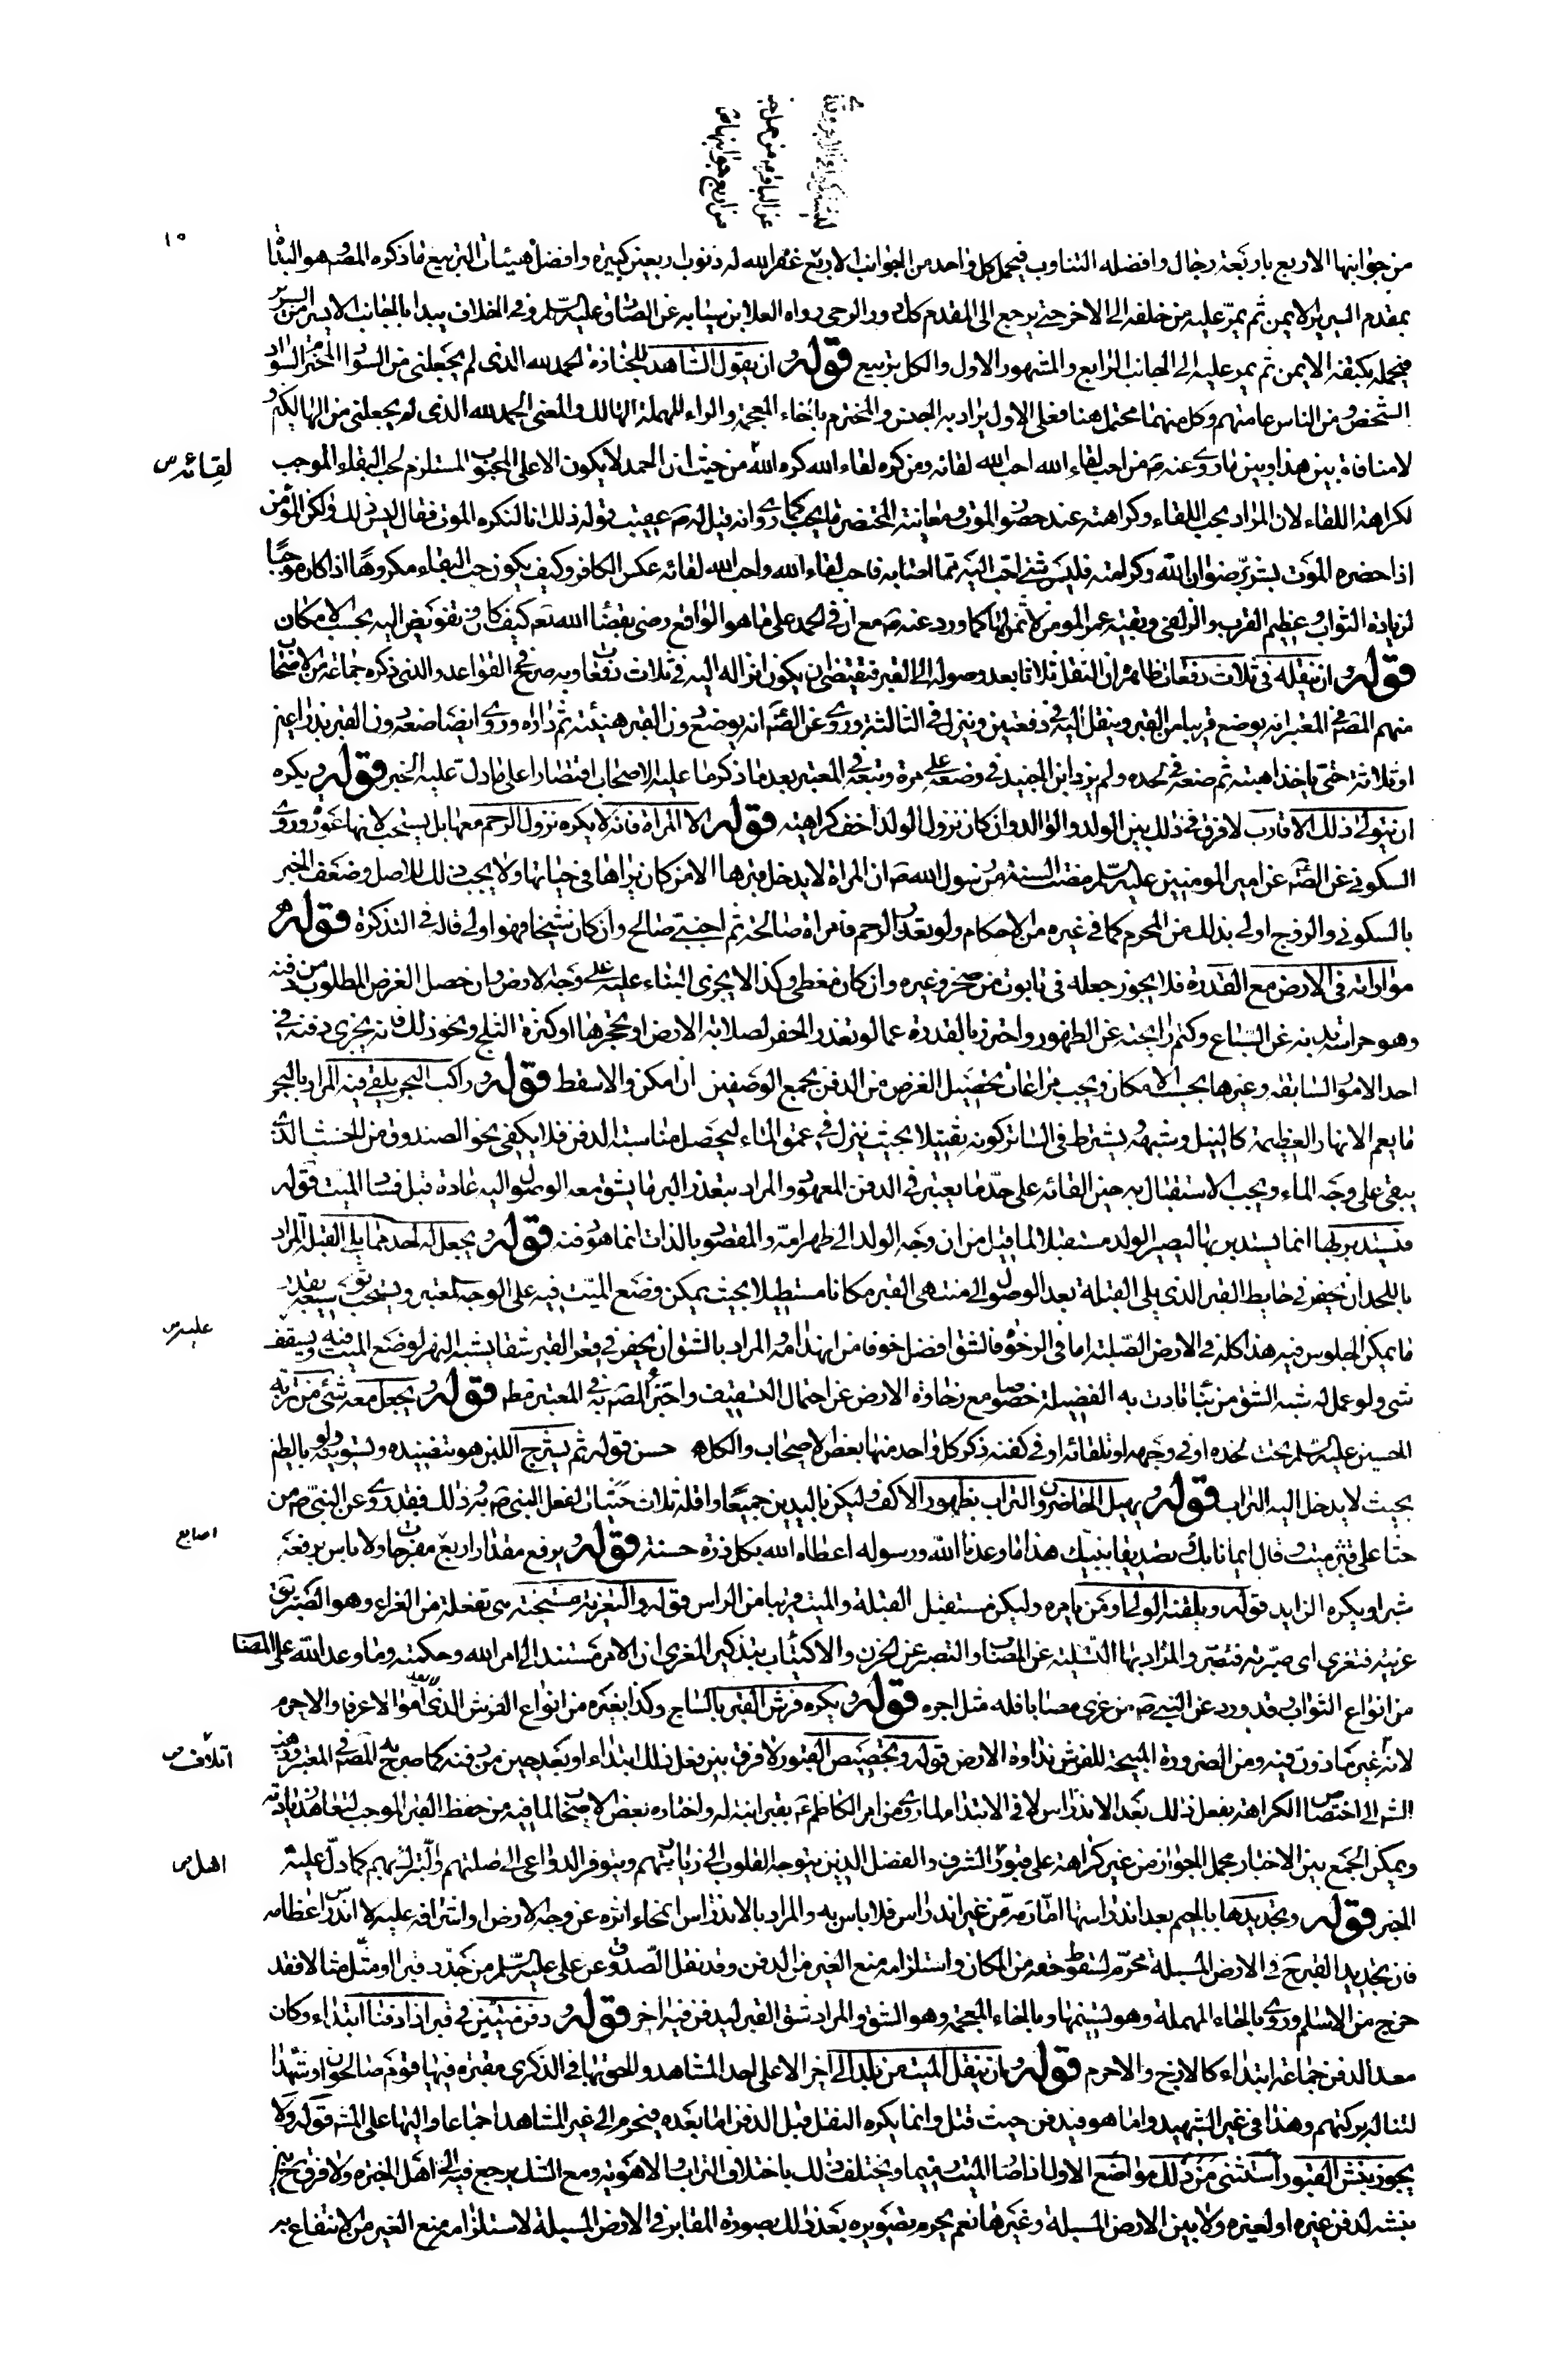 من جوانبها الاربع باربعة رجال وافضله التناوب فيحمل كل واحد من الجوانب الاربع غفر الله له ذنوب اربعين كبيرة وافضل هيئات التربيع ما ذكره المص هو البدأة
بمقدم السرير الايمن ثم يمر عليه من خلفه الى الاخر حتى يرجع الى المقدم كل دور الرحى رواه العلا بن سيابه عن الصادق عليه السلم وفى الخلاف يبدا بالجانب الايسر من السرير
فيحمله بكتفه الايمن ثم يمر عليه الى الجانب الرابع والمشهور الاول والكل تربيع قوله ان يقول المشاهد للجنازة الحمد لله الذى لم يجعلنى من السواد المخترم السواد
الشخص ومن الناس عامتهم وكل منهما محتمل هنا فعلى الاول يراد به الجنس والمخترم بالخاء المعجمة والراء المهملة الهالك والمعنى الحمد لله الذى لم يجعلنى من الهالكين و
لا منافاة بين هذا وبين ما روى عنه ص من احب لقاء الله احب الله لقائه ومن كره لقاء الله كره الله من حيث ان الحمد لا يكون الا على المحبوب المستلزم لحب البقاء الموجب
لقائه ص
لكراهة اللقاء لان المراد بحب اللقاء وكراهته عند حضور الموت ومعاينة المحتضر ما يحب كما روى انه قيل له ص عقيب قوله ذلك انا لنكره الموت فقال ليس ذلك ولكن المؤمن
اذا حضره الموت بشر برضوان الله وكرامته فليس شئ احب اليه مما امامه فاحب لقاء الله واحب الله لقائه عكس الكافر وكيف يكون حب البقاء مكروها اذا كان موجبا
لزيادة الثواب وعظيم القرب والزلفى وبقية عمر المومن لا ثمن لها كما ورد عنه ص مع ان فى الحمد على ما هو الواقع رضى بقضاء الله تع كيف كان وتفويض اليه بحسب الامكان
قوله ان ينقله فى ثلاث دفعات ظاهره ان النقل ثلاثا بعد وصوله الى القبر فتقتضى ان يكون انزاله اليه فى ثلاث دفعات وبه صرح فى القواعد والذى ذكره جماعة من الاصحاب
منهم المص فى المعتبر انه يوضع قريبا من القبر وينقل اليه فى دفعتين وينزل فى الثالثة وروى عن الص انه يوضع دون القبر هنيئة ثم داراه وروى ايضا ضعه دون القبر بذراعين
او ثلاثة حتى ياخذ اهبته ثم ضعه فى لحده ولم يزد ابن الجنيد فى وضعه على مرة وتبعه فى المعتبر بعد ما ذكر ما عليه الاصحاب اقتصارا على ما دل عليه الخبر قوله ويكره
ان يتولى ذلك الاقارب لا فرق فى ذلك بين الولد والوالد وان كان نزول الولد اخف كراهية قوله الا المراة فانه لا يكره نزول الرحم معها بل يستحب لانها عورة وروى
السكونى عن الص عن امير المومنين عليه السلم مضت السنة من رسول الله ص ان المراة لا يدخل قبرها الا من كان يراها فى حياتها ولا يجب ذلك للاصل وضعف الخبر
بالسكونى والزوج اولى بذلك من المحرم كما فى غيره من الاحكام ولو تعذر الرحم فامراة صالحة ثم اجنبى صالح وان كان شيخا فهو اولى قاله فى التذكرة قوله
مواراته فى الارض مع القدرة فلا يجوز جعله فى تابوت من صخر وغيره وان كان مغطى وكذا لا يجزى البناء عليه على وجه الارض وان حصل الغرض المطلوب من دفنه
وهو حراسة بدنه عن السباع وكتم رائحته عن الظهور واحترز بالقدرة عما لو تعذر الحفر لصلابة الارض او تحجرها او كثرة الثلج ونحو ذلك فانه يجزى دفنه فى
احد الامور السابقه وغيرها بحسب الامكان ويجب مراعات تحصيل الغرض من الدفن بجمع الوصفين ان امكن والا سقط قوله وراكب البحر يلقى فيه المراد بالبحر
ما يعم الانهار العظيمة كالنيل وشبهه ويشترط فى الساتر كونه ثقيلا بحيث ينزل فى عمق الماء ليحصل مناسبة الدفن فلا يكفى نحو الصندوق من الخشب الذى
يبقى على وجه الماء ويجب الاستقبال به حين القائه على حد ما يعتبر فى الدفن المعهود والمراد بتعذر البر ما يشق معه الوصول اليه عادة قبل فساد الميت قوله
فتستدبر بها انما يستدبر بها ليصير الولد مستقبلا لما قيل من ان وجه الولد الى ظهر امه والمقصود بالذات انما هو دفنه قوله ويجعل له لحد مما يلى القبلة المراد
باللحد ان يحفر فى حايط القبر الذى يلى القبلة بعد الوصول الى منتهى القبر مكانا مستطيلا بحيث يمكن وضع الميت فيه على الوجه المعتبر ويستحب سعته بقدر
ما يمكن الجلوس فيه هذا كله فى الارض الصلبة اما فى الرخوة فالشق افضل خوفا من انهدامه والمراد بالشق ان يحفر فى قعر القبر شقا يشبه النهر لوضع الميت فيه ويسقف
عليه ص
شى ولو عمل له شبه الشق من بناء تادت به الفضيلة خصوصا مع رخاوة الارض عن احتمال التسقيف واحترز المص به فى المعتبر قوله ويجعل معه شئ من تربة
الحسين عليه السلم تحت خده او فى وجهه او تلقائه او فى كفنه ذكر كل واحد منها بعض الاصحاب والكل حسن قوله ثم يشرج اللبن هو تنضيده وتسويته ولو بالطين
بحيث لا يدخل اليه التراب قوله ويهيل الحاضرون التراب بظهور الاكف وليكن باليدين جميعا واقله ثلاث حثيات لفعل النبى ص ذلك فقد روى عن النبى ص من
حثا على قبر ميت وقال ايمانا بك وتصديقا بنبيك هذا ما وعدنا الله ورسوله اعطاه الله بكل ذرة حسنة قوله ويرفع مقدار اربع مفرجات ولا باس برفعه
اصابع
شبرا ويكره الزايد قوله ويلقنه الولى او من يامره وليكن مستقبل القبلة والميت قريبا من الراس قوله والتعزية مستحبة هى تفعلة من العزاء وهو الصبر يق
عزيته فتعزى اى صبرته فتصبر والمراد بها التسلية عن المصاب والتصبر عن الحزن والاكتئاب بتذكير المعزى ان الامر مستند الى امر الله وحكمته وما وعد الله على المصاب
من انواع الثواب وقد ورد عن النبى ص من عزى مصابا فله مثل اجره قوله ويكره فرش القبر بالساج وكذا بغيره من انواع الفرش الذى لا يعد مالا عرفا والا حرم
لانه غير ماذون فيه ومن الضرورة المبيحة للفرش نداوة الارض قوله وتجصيص القبور لا فرق بين فعل ذلك ابتداء او بعد حين من دفنه كما صرح به المص فى المعتبر وذهب
اتلاف ص
الشيخ الى اختصاص الكراهة بفعل ذلك بعد الاندراس لا فى الابتداء لما روى من امر الكاظم ع بقبر ابنة له واختاره بعض الاصحاب لما فيه من حفظ القبر الموجب لتعاهد زيارته
ويمكن الجمع بين الاخبار بحمل الجواز من غير كراهة على قبور الشرف والفضل الذين يتوجه القلوب الى زيارتهم ويتوفر الدواعى الى صلتهم والتبرك بهم كما دل عليه
اهل ص
الخبر قوله وتجديدها بالجيم بعد اندراسها اما رمه من غير اندراس فلا باس به والمراد بالاندراس انمحاء اثره عن وجه الارض او اشرافه عليه لا اندراس عظامه
فان تجديد القبر ح فى الارض المسبلة محرم لسقوط حقه من المكان واستلزامه منع الغير من الدفن وقد نقل الصدوق عن على عليه السلم من جدد قبرا او مثل مثالا فقد
خرج من الاسلم وروى بالحاء المهملة وهو تسنيمها وبالخاء المعجمة وهو الشق والمراد شق القبر ليدفن فيه اخر قوله ودفن ميتين فى قبر اذا دفنا ابتداء وكان
معدا لدفن جماعة ابتداء كالازج والا حرم قوله وان ينقل الميت من بلد الى اخر الا على احد المشاهد والحق بها فى الذكرى مقبرة فيها قوم صالحون او شهداء
لتناله بركتهم وهذا فى غير الشهيد واما هو فيدفن حيث قتل وانما يكره النقل قبل الدفن اما بعده فيحرم الى غير المشاهد اجماعا واليها على المش قوله ولا
يجوز نبش القبور استثنى من ذلك مواضع الاول اذا صار الميت رميما ويختلف ذلك باختلاف التراب والاهوية ومع الشك يرجع فيه الى اهل الخبرة ولا فرق بين
نبشه لدفن غيره او لغيره ولا بين الارض المسبلة وغيرها نعم يحرم تصويره بعد ذلك بصورة المقابر فى الارض المسبلة لاستلزامه منع الغير من الانتفاع به